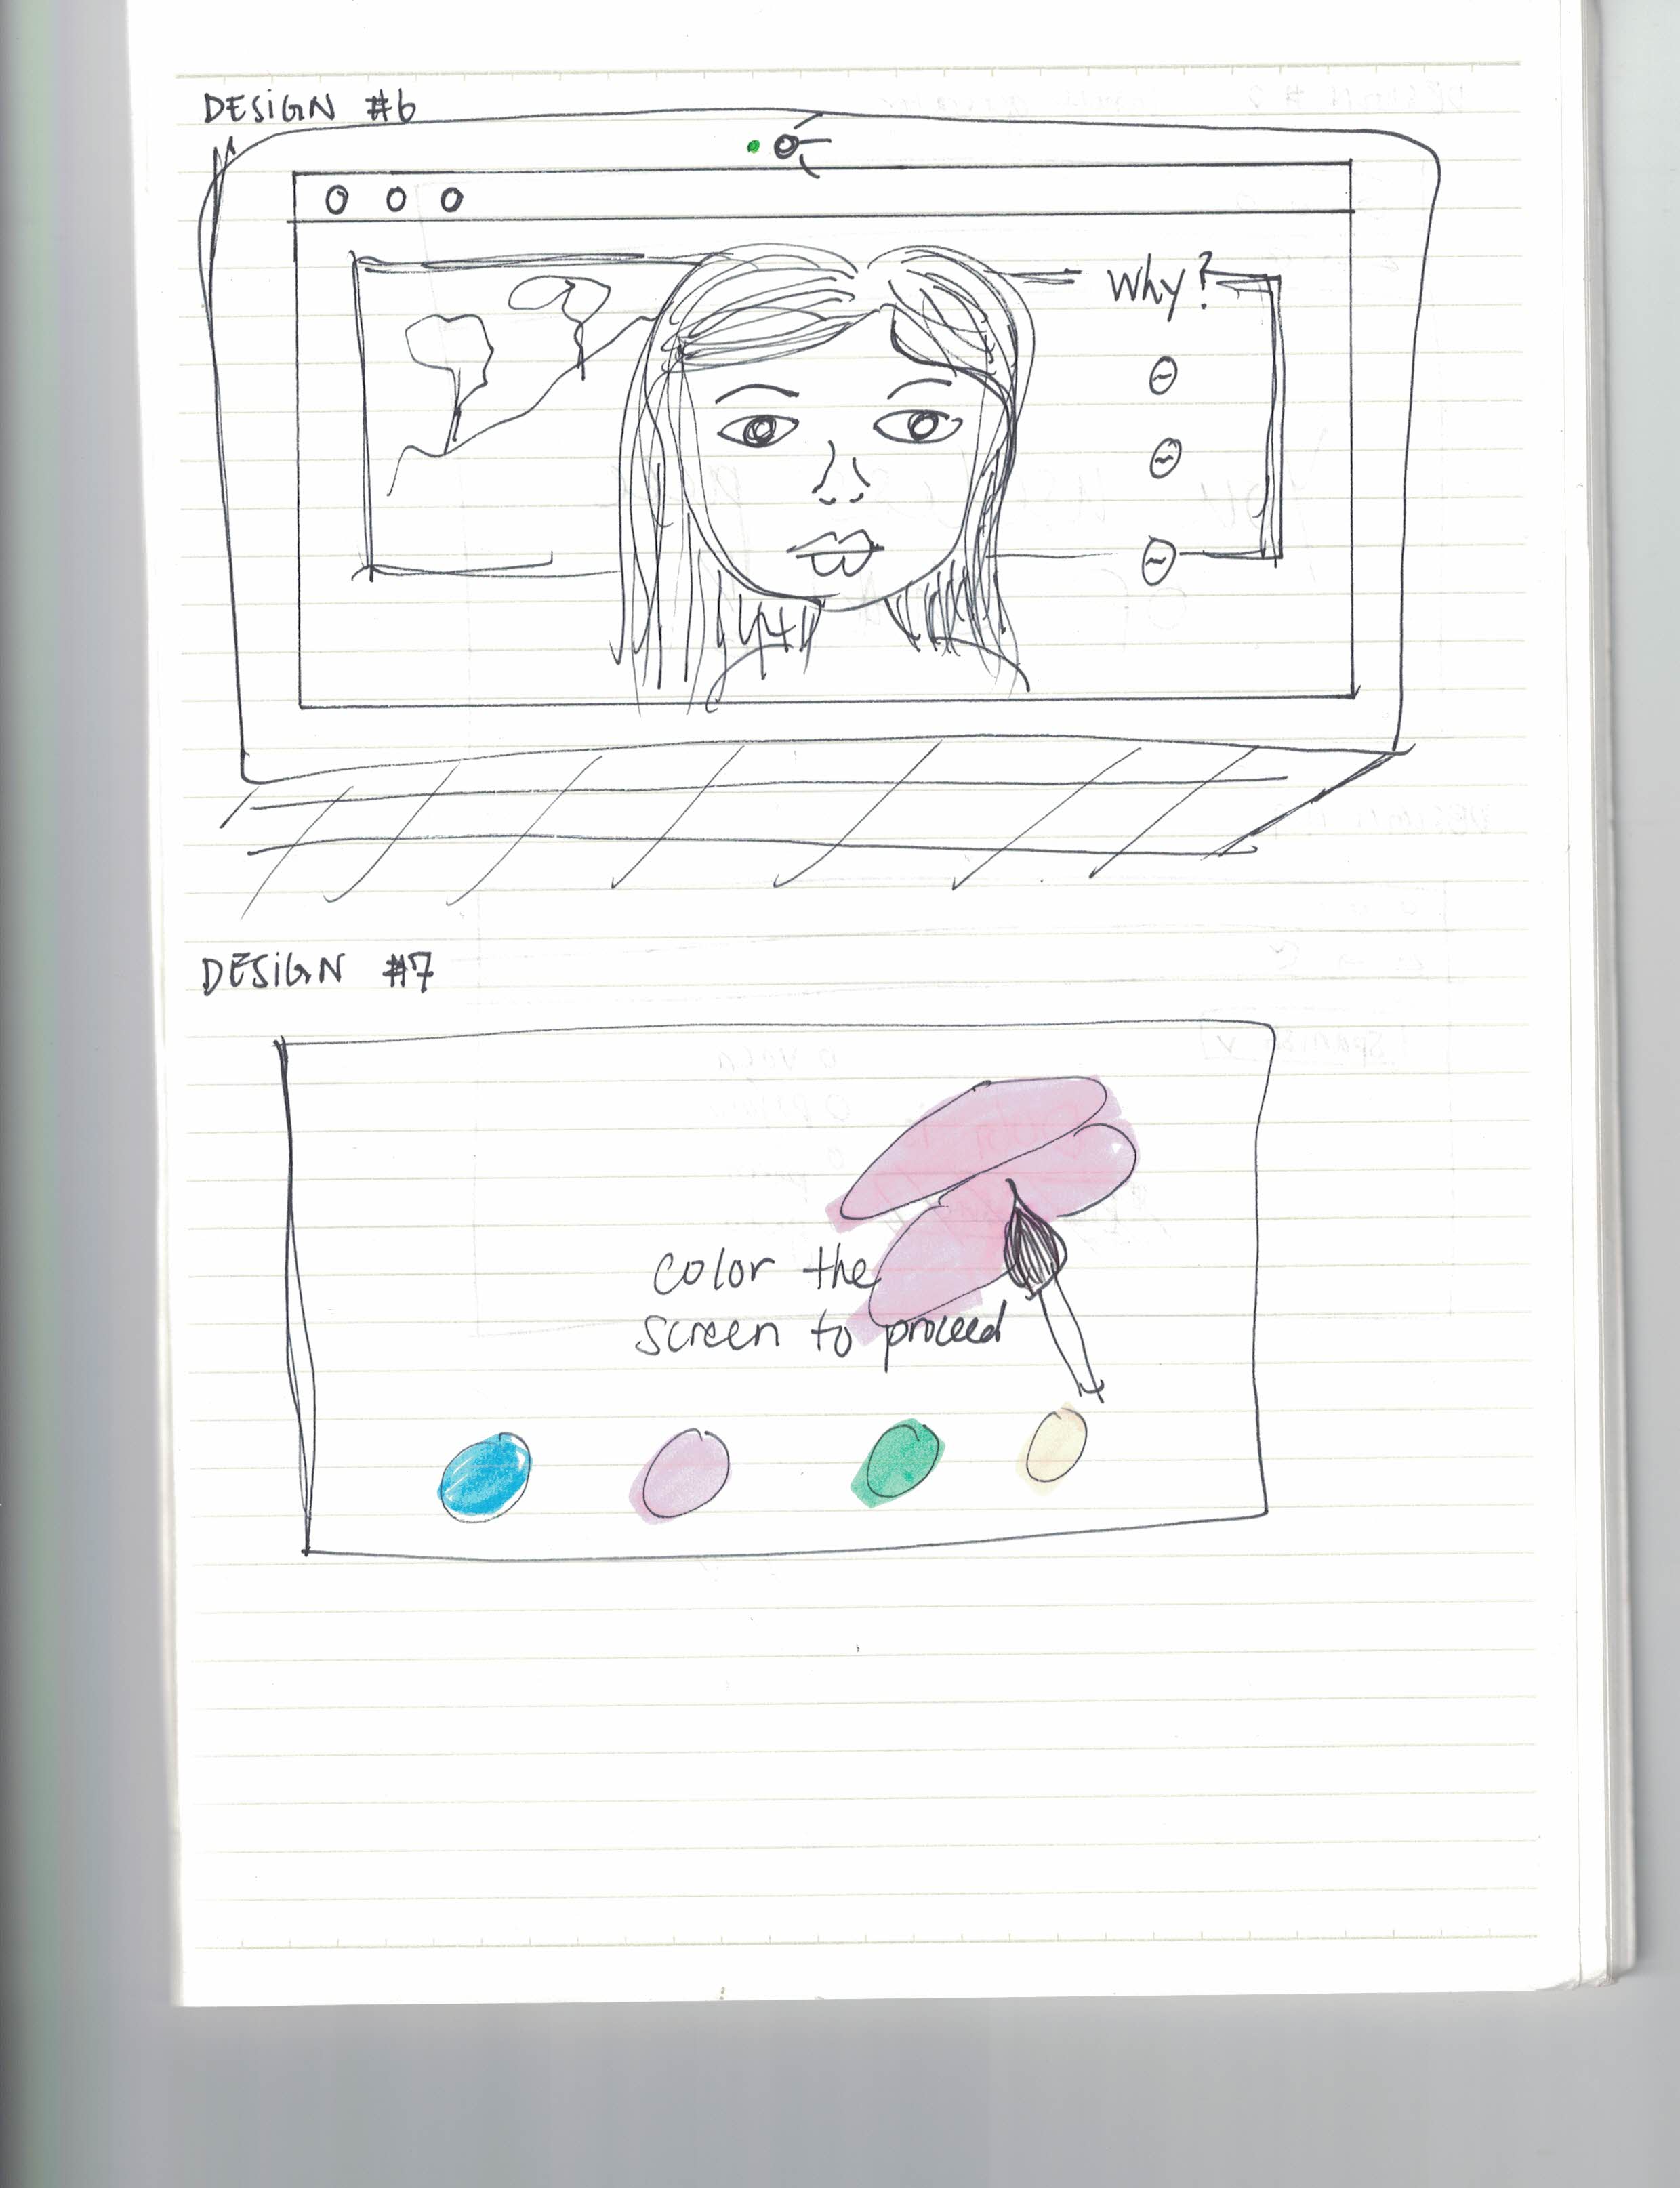 DESIGN #6
Why?
DESIGN #7
color the
screen to proceed